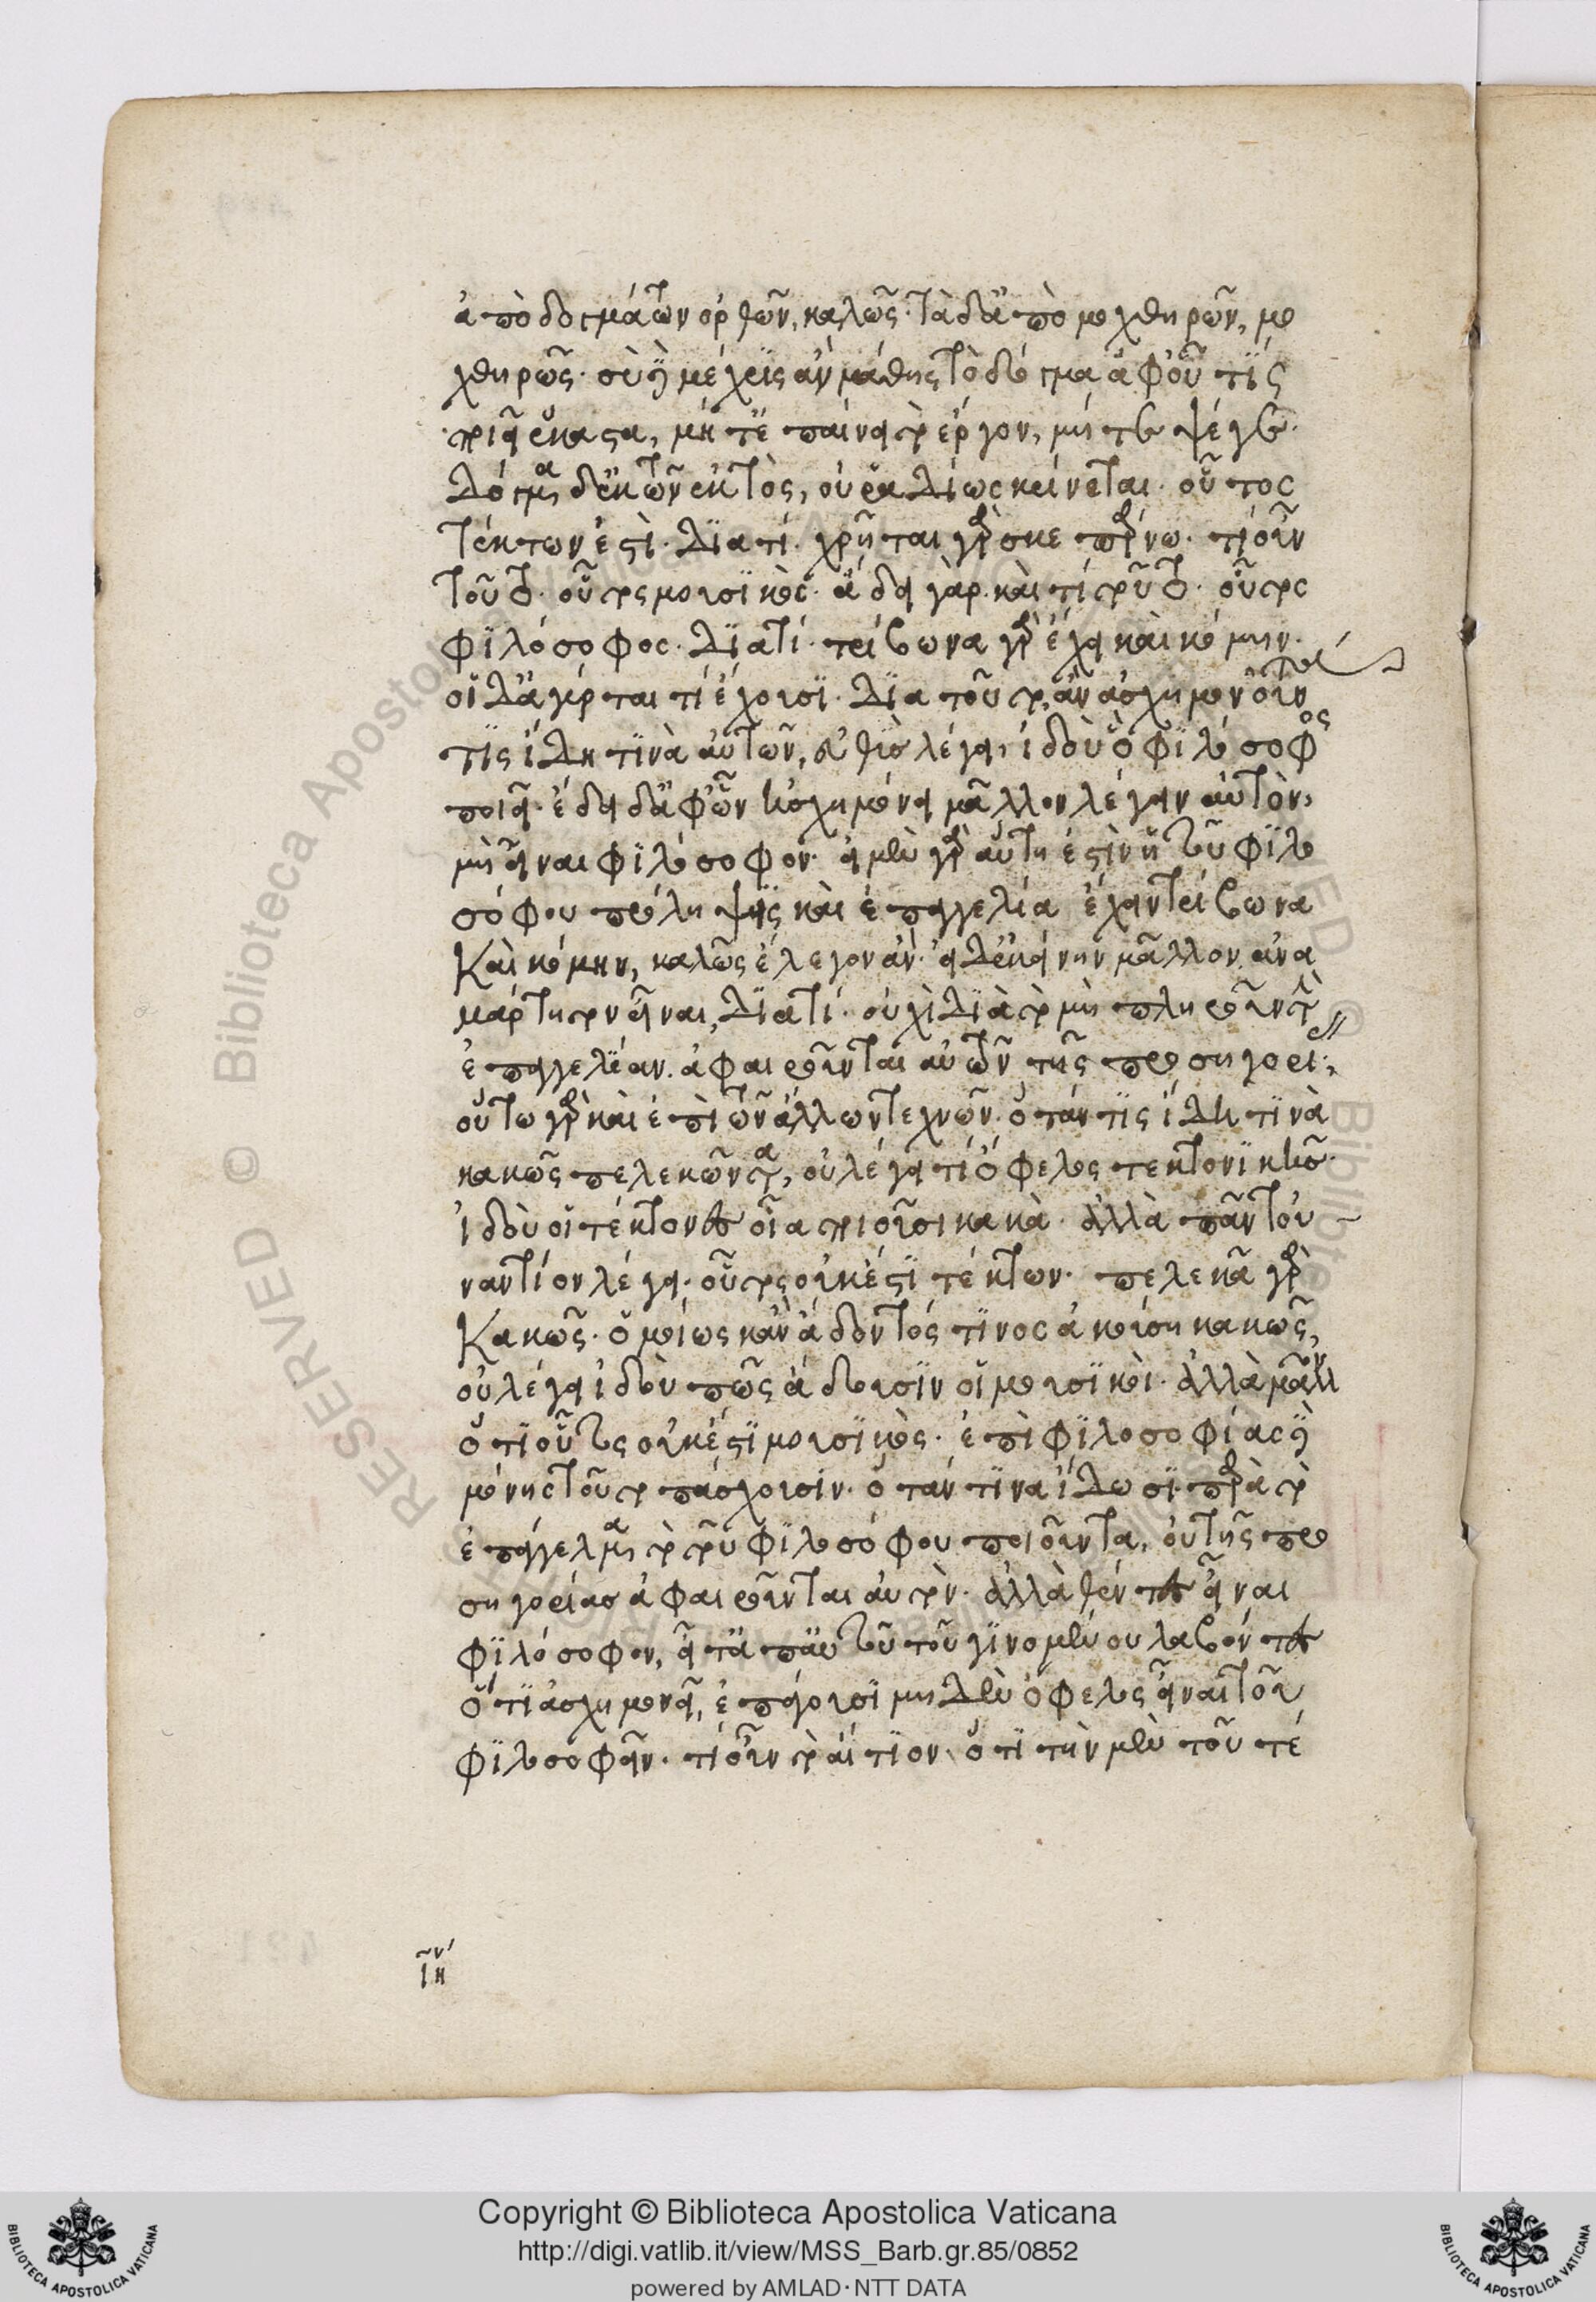 ἀπὸ δογμάτων ὀρθῶν, καλῶς· τὰ δ' ἀπὸ μοχθηρῶν, μο
χθηρῶς· σὺ δὲ μέχρις ἂν μάθῃς τὸ δόγμα ἀφ' οὗ τὶς
ποιεῖ ἕκαστα, μήτ' ἐπαίνει τὸ ἔργον, μήτε ψέγε·
δόγμα δ' ἐκ τῶν ἐκτὸς, οὐ ῥᾳδίως κρίνεται· οὗτος
τέκτων ἐστὶ· διατί· χρῆται γὰρ σκεπάρνω· τί οὖν
τοῦτο· οὗτος μουσικὸς· ἄδει γὰρ· καὶ τί τοῦτο· οὗτος
φιλόσοφος· διατί· τρίβωνα γὰρ ἔχει καὶ κόμην·
οἱ δ' ἀγύρται τί ἔχουσι· διὰ τοῦτο, ἂν ἀσχημονοῦντα
τὶς ἴδῃ τινὰ αὐτῶν, εὐθὺς λέγει, ἰδοὺ ὁ φιλόσοφος
ποιεῖ· ἔδει δ' ἀφ' ὧν ἠσχημόνει μᾶλλον λέγειν αὐτὸν,
μὴ εἶναι φιλόσοφον· εἰ μὲν γὰρ αὕτη ἐστὶν ἡ τοῦ φιλο
σόφου πρόληψις καὶ ἐπαγγελία ἔχειν τρίβωνα
καὶ κόμην, καλῶς ἔλεγον ἂν· εἰ δ' ἐκείνην μᾶλλον ἀνα
μάρτητον εἶναι, διατί· οὐχὶ διὰ τὸ μὴ πληροῦν τὴν
ἐπαγγελίαν· ἀφαιροῦνται αὐτῶν τῆς προσηγορίας,
οὕτω γὰρ καὶ ἐπὶ τῶν ἄλλων τεχνῶν· ὅταν τὶς ἴδῃ τινὰ
κακῶς πελεκῶντα, οὐ λέγει τί ὄφελος τεκτονικῆς·
ἰδοὺ οἱ τέκτονες οἷα ποιοῦσι κακὰ· ἀλλὰ πᾶν τοὐ
ναντίον λέγει· οὗτος οὐκέστι τέκτων· πελεκᾷ γὰρ
κακῶς· ὁμοίως κἂν ἄδοντός τινος ἀκούσῃ κακῶς,
οὐ λέγει ἰδοὺ πῶς ἄδουσιν οἱ μουσικοὶ· ἀλλὰ μᾶλλον
ὅτι οὗτος οὐκέστι μουσικὸς· ἐπὶ φιλοσοφίας δὲ
μόνης τοῦτο πάσχουσιν· ὅταν τινα ἴδωσι παρὰ τὸ
ἐπάγγελμα τὸ τοῦ φιλοσόφου ποιοῦντα, οὐ τῆς προ
σηγορίας ἀφαιροῦνται αὐτὸν· ἀλλὰ θέντες εἶναι
φιλόσοφον, εἶτα ἀπ' αὐτοῦ τοῦ γινομένου λαβόντες
ὅτι ἀσχημονεῖ, ἐπάγουσι μηδὲν ὄφελος εἶναι τοῦ
φιλοσοφεῖν· τί οὖν τὸ αἴτιον· ὅτι τὴν μὲν τοῦ τέ
Copyright © Biblioteca Apostolica Vaticana
http://digi.vatlib.it/view/MSS_Barb.gr.85/0852
powered by AMLAD·NTT DATA